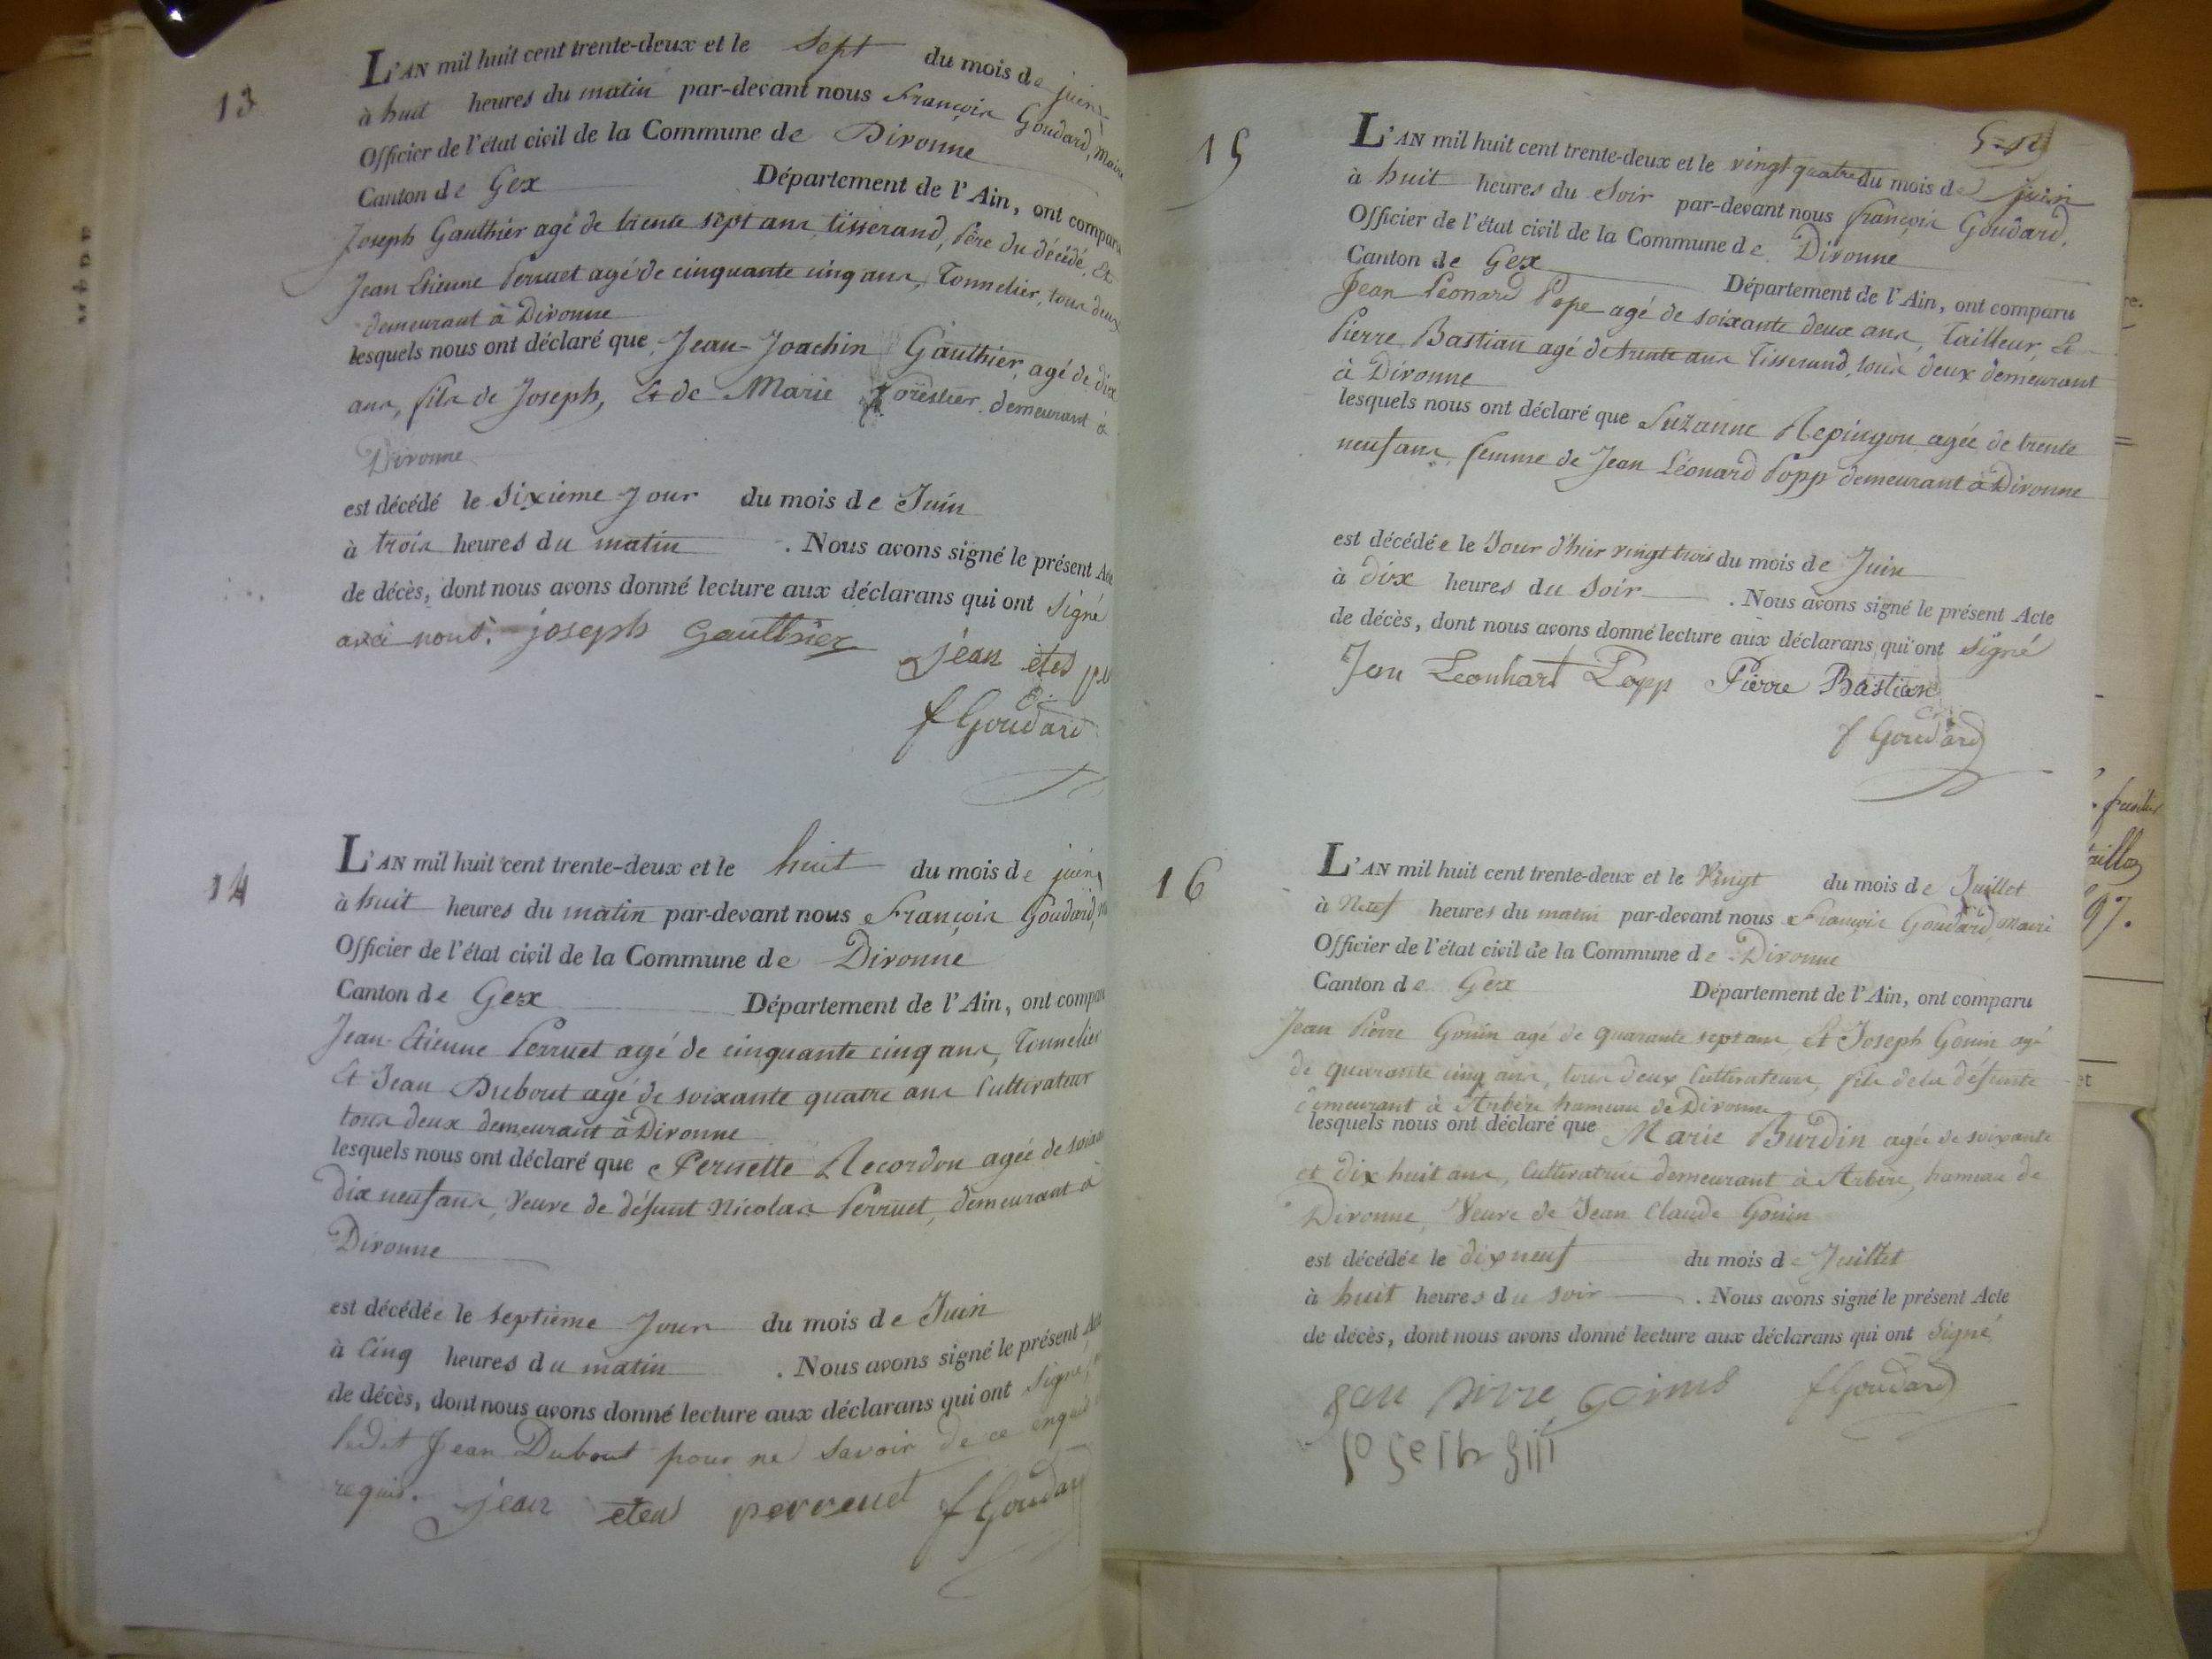 13
L'AN mil huit cent trente-deux et le sept du mois de juin
à huit heures du matin par-devant nous François Goudard, Maire
Officier de l'état civil de la Commune de Divonne
Canton de Gex Département de l'Ain, ont comparu
Joseph Gauthier agé de trente sept ans tisserand, Père du décédé, Et
Jean Etienne Perruet agé de cinquante cinq ans, Tonnelier, tous deux
demeurant à Divonne
lesquels nous ont déclaré que Jean-Joachin Gauthier, agé de dix
ans, fils de Joseph, Et de Marie Forestier demeurant à
Divonne
est décédé le Sixième Jour du mois de Juin
à trois heures du matin . Nous avons signé le présent Acte
de décès, dont nous avons donné lecture aux déclarans qui ont Signé
avec nous. joseph Gauthier
jean etes
f Goudard
14
L'AN mil huit cent trente-deux et le huit du mois de juin
à huit heures du matin par-devant nous François Goudard,
Officier de l'état civil de la Commune de Divonne
Canton de Gex Département de l'Ain, ont comparu
Jean-Etienne Perruet agé de cinquante cinq ans, Tonnelier
Et Jean Dubout agé de soixante quatre ans Cultivateur
tous deux demeurant à Divonne
lesquels nous ont déclaré que Pernette Recordon agée de soixante
dix neuf ans, Veuve de défunt Nicolas Perruet, demeurant à
Divonne
est décédée le septième Jour du mois de Juin
à Cinq heures du matin . Nous avons signé le présent Acte
de décès, dont nous avons donné lecture aux déclarans qui ont Signé,
ledit Jean Dubout pour ne savoir de ce enquis
requis. jean eten perreuet f Goudard
15
L'AN mil huit cent trente-deux et le vingt quatre du mois de juin
à huit heures du Soir par-devant nous François Goudard,
Officier de l'état civil de la Commune de Divonne
Canton de Gex Département de l'Ain, ont comparu
Jean Léonard Pope agé de soixante deux ans, Tailleur, Et
Pierre Bastian agé de trente ans Tisserand, tous deux demeurant
à Divonne
lesquels nous ont déclaré que Suzanne Repingon agée de trente
neuf ans, femme de Jean Léonard Popp demeurant à Divonne
est décédée le Jour d'hier vingt trois du mois de Juin
à dix heures du Soir . Nous avons signé le présent Acte
de décès, dont nous avons donné lecture aux déclarans qui ont Signé
Jean Leonhart Popp Pierre Bastian
f Goudard
16
L'AN mil huit cent trente-deux et le Vingt du mois de Juillet
à Neuf heures du matin par-devant nous François Goudard, Maire
Officier de l'état civil de la Commune de Divonne
Canton de Gex Département de l'Ain, ont comparu
Jean Pierre Gonin agé de quarante sept ans, Et Joseph Gonin agé
de quarante cinq ans, tous deux Cultivateurs, fils de la défunte
demeurant à Arbère hameau de Divonne
lesquels nous ont déclaré que Marie Burdin agée de soixante
et dix huit ans, Cultivatrice demeurant à Arbère, hameau de
Divonne, Veuve de Jean Claude Gonin
est décédée le dix neuf du mois de Juillet
à huit heures du soir . Nous avons signé le présent Acte
de décès, dont nous avons donné lecture aux déclarans qui ont Signé,
f Goudard
97.